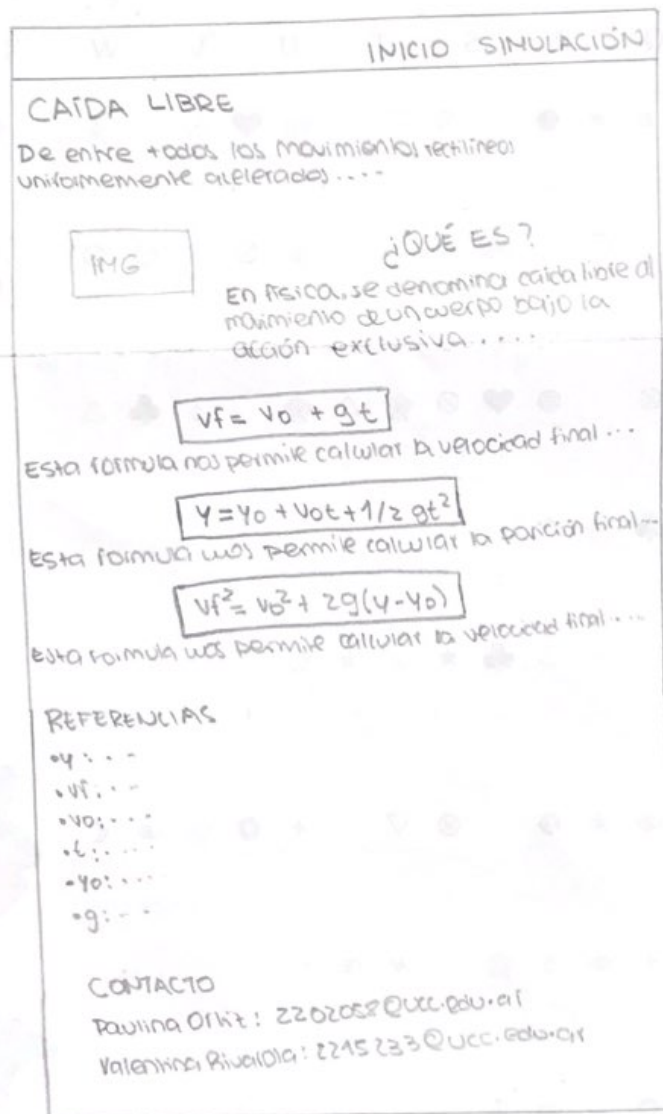 INICIO SIMULACIÓN
CAÍDA LIBRE
De entre todos los movimientos rectilíneos
uniformemente acelerados....
IMG
¿QUÉ ES?
En física, se denomina caída libre al
movimiento de un cuerpo bajo la
acción exclusiva....
vf = vo + gt
Esta formula nos permite calcular la velocidad final...
y = yo + vot + 1/2 gt²
Esta formula nos permite calcular la posición final...
vf² = vo² + 2g(y-yo)
Esta formula nos permite calcular la velocidad final....
REFERENCIAS
•y: . . -
•vf: . - -
•vo: . . .
•t: . . . .
•yo: . . .
•g: - - .
CONTACTO
Paulina Ortiz: 2202058@ucc.edu.ar
Valentina Rivarola: 2215233@ucc.edu.ar